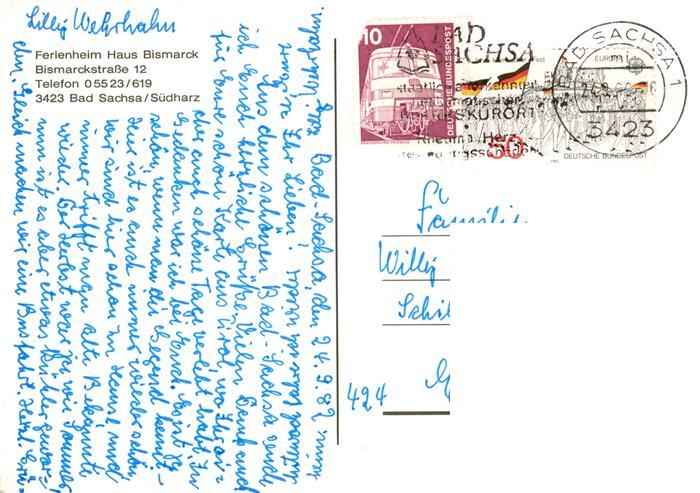 Lilly Wehrhahn
Ferienheim Haus Bismarck
Bismarckstraße 12
Telefon 05523/619
3423 Bad Sachsa/Südharz
Bad-Sachsa, den 24.9.82
Ihr Lieben!
Aus dem schönen Bad-Sachsa sende
ich Euch herzliche Grüße. Vielen Dank auch
für Eure schöne Karte aus Tirol, wo Ihr si-
cher auch schöne Tage verlebt habt. In
Gedanken war ich bei Euch. Es ist ja
schön, wenn man die Gegend kennt.
Hier ist es auch immer wieder schön,
wir sind hier schon zu Hause und
immer trifft man alte Bekannte
wieder. Der Herbst war ja wie Sommer
nun ist es aber etwas kühler gewor-
den. Gleich machen wir eine Busfahrt. Herzl. Grü-
10
DEUTSCHE BUNDESPOST
BAD
SACHSA
staatlich anerkannter
KURORT
BAD SACHSA 1
3423
EUROPA
50
DEUTSCHE BUNDESPOST
Familie
Willy
424